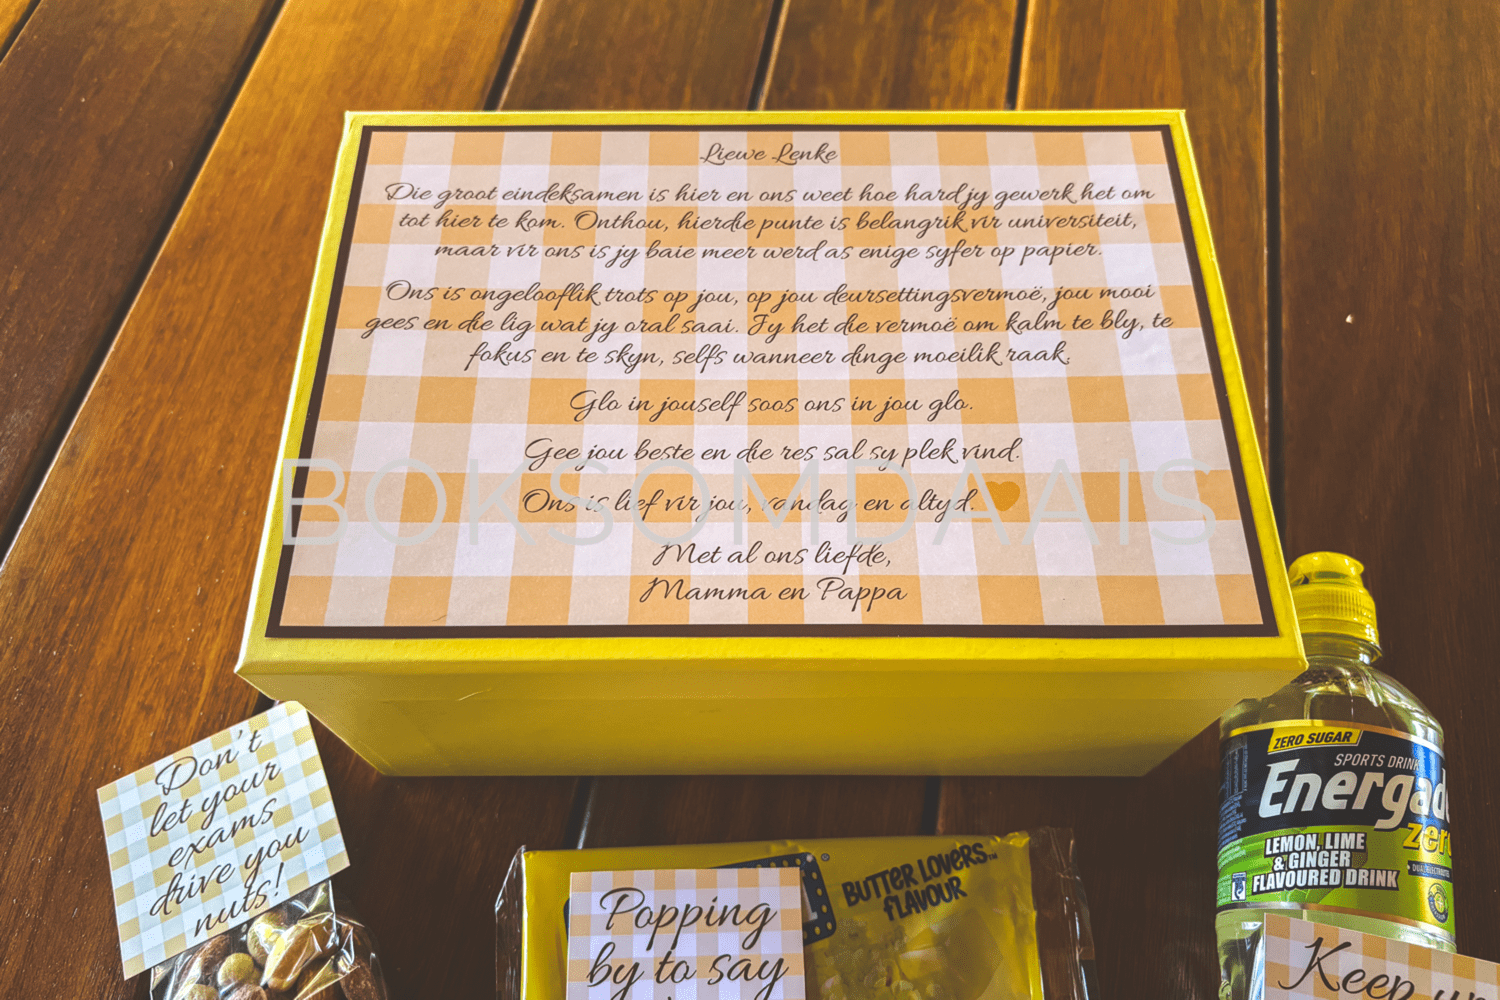 Liewe Lenke
Die groot eindeksamen is hier en ons weet hoe hard jy gewerk het om
tot hier te kom. Onthou, hierdie punte is belangrik vir universiteit,
maar vir ons is jy baie meer werd as enige syfer op papier.
Ons is ongelooflik trots op jou, op jou deursettingsvermoë, jou mooi
gees en die lig wat jy oral saai. Jy het die vermoë om kalm te bly, te
fokus en te skyn, selfs wanneer dinge moeilik raak.
Glo in jouself soos ons in jou glo.
Gee jou beste en die res sal sy plek vind.
Ons is lief vir jou, vandag en altyd.
Met al ons liefde,
Mamma en Pappa
BOKSOMDAAIS
Don't
let your
exams
drive you
nuts!
Popping
by to say
BUTTER LOVERS™
FLAVOUR
ZERO SUGAR
SPORTS DRINK
Energade
zero
LEMON, LIME
& GINGER
FLAVOURED DRINK
Keep up